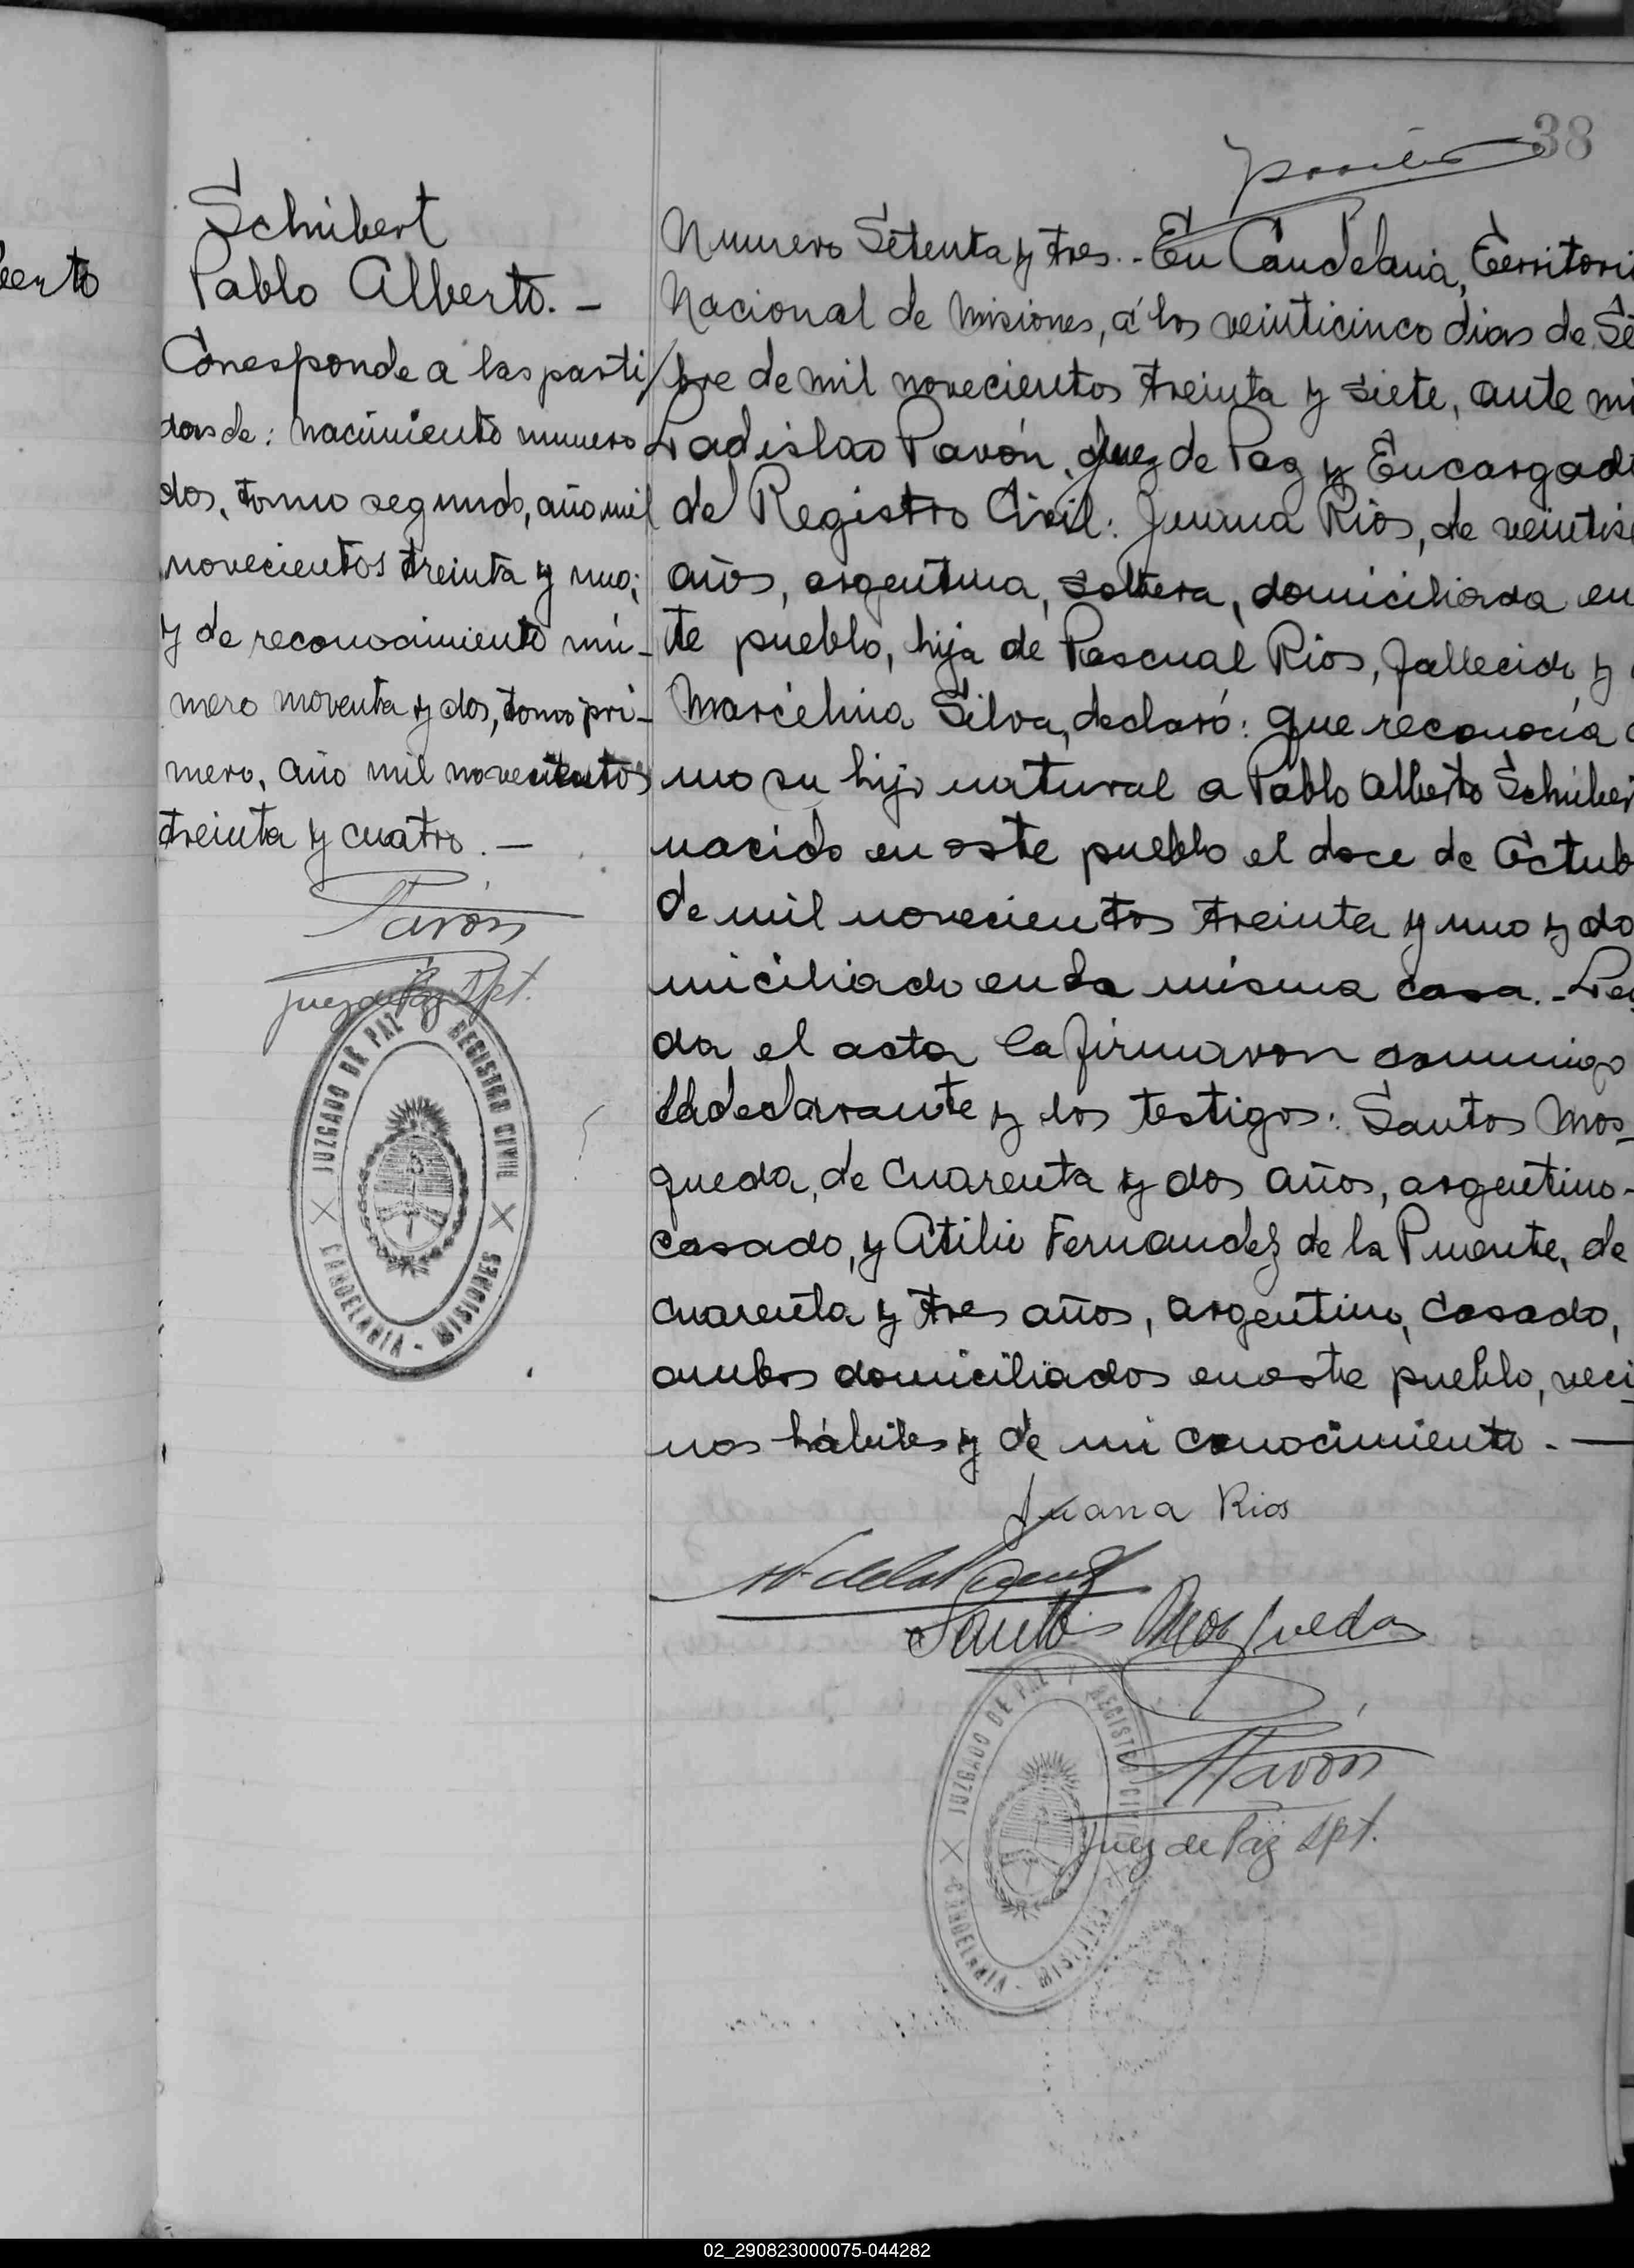 38
berto
Schubert
Pablo Alberto. -
Coresponde a las parti
das de: nacimiento numero
dos, tomo segundo, año mil
novecientos treinta y uno;
y de reconocimiento nú-
mero noventa y dos, tomo pri-
mero, año mil novecientos
treinta y cuatro. -
Pavón
Juez de Paz Spt.
JUZGADO DE PAZ Y REGISTRO CIVIL
CANDELARIA - MISIONES
Numero Setenta y tres. - En Candelaria, Territori
Nacional de Misiones, á los veinticinco dias de Se
bre de mil novecientos treinta y siete, ante mi
Ladislao Pavón, Juez de Paz y Encargad
de Registro Civil: Juana Rios, de veintis
años, argentina, soltera, domiciliada en
te pueblo, hija de Pascual Rios, fallecido y
Marcelina Silva, declaró: que reconocia c
mo su hijo natural a Pablo Alberto Schuber
nacido en este pueblo el doce de Octub
de mil novecientos treinta y uno y do
miciliado en la misma casa. - Lei
da el acta la firmaron conmigo
la declarante y los testigos: Santos Mos-
queda, de cuarenta y dos años, argentino -
casado, y Atilio Fernandez de la Puente, de
cuarenta y tres años, argentino, casado,
ambos domiciliados en este pueblo, veci
nos hábiles y de mi conocimiento. -
Juana Rios
de la Puente
Santos Mosqueda
Pavón
Juez de Paz Spt.
JUZGADO DE PAZ Y REGISTRO CIVIL
CANDELARIA - MISIONES
02_290823000075-044282